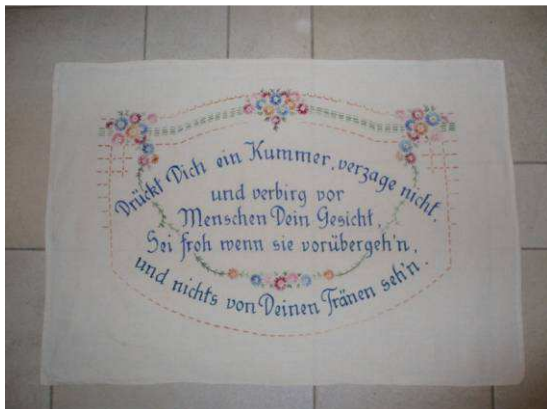 Drückt Dich ein Kummer, verzage nicht,
und verbirg vor
Menschen Dein Gesicht,
Sei froh wenn sie vorübergeh'n,
und nichts von Deinen Tränen seh'n.